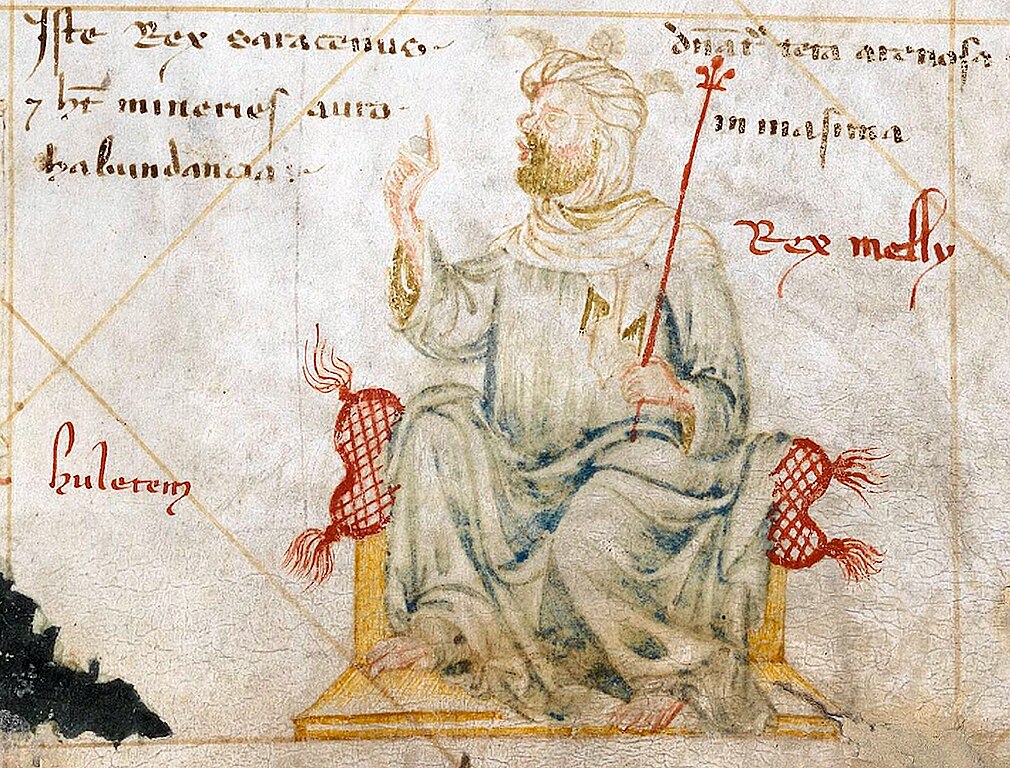 Iste Rex saracenus
⁊ ht mineries auro
habundancia
dnatr tera arenosa
in masima
Rex melly
huletem